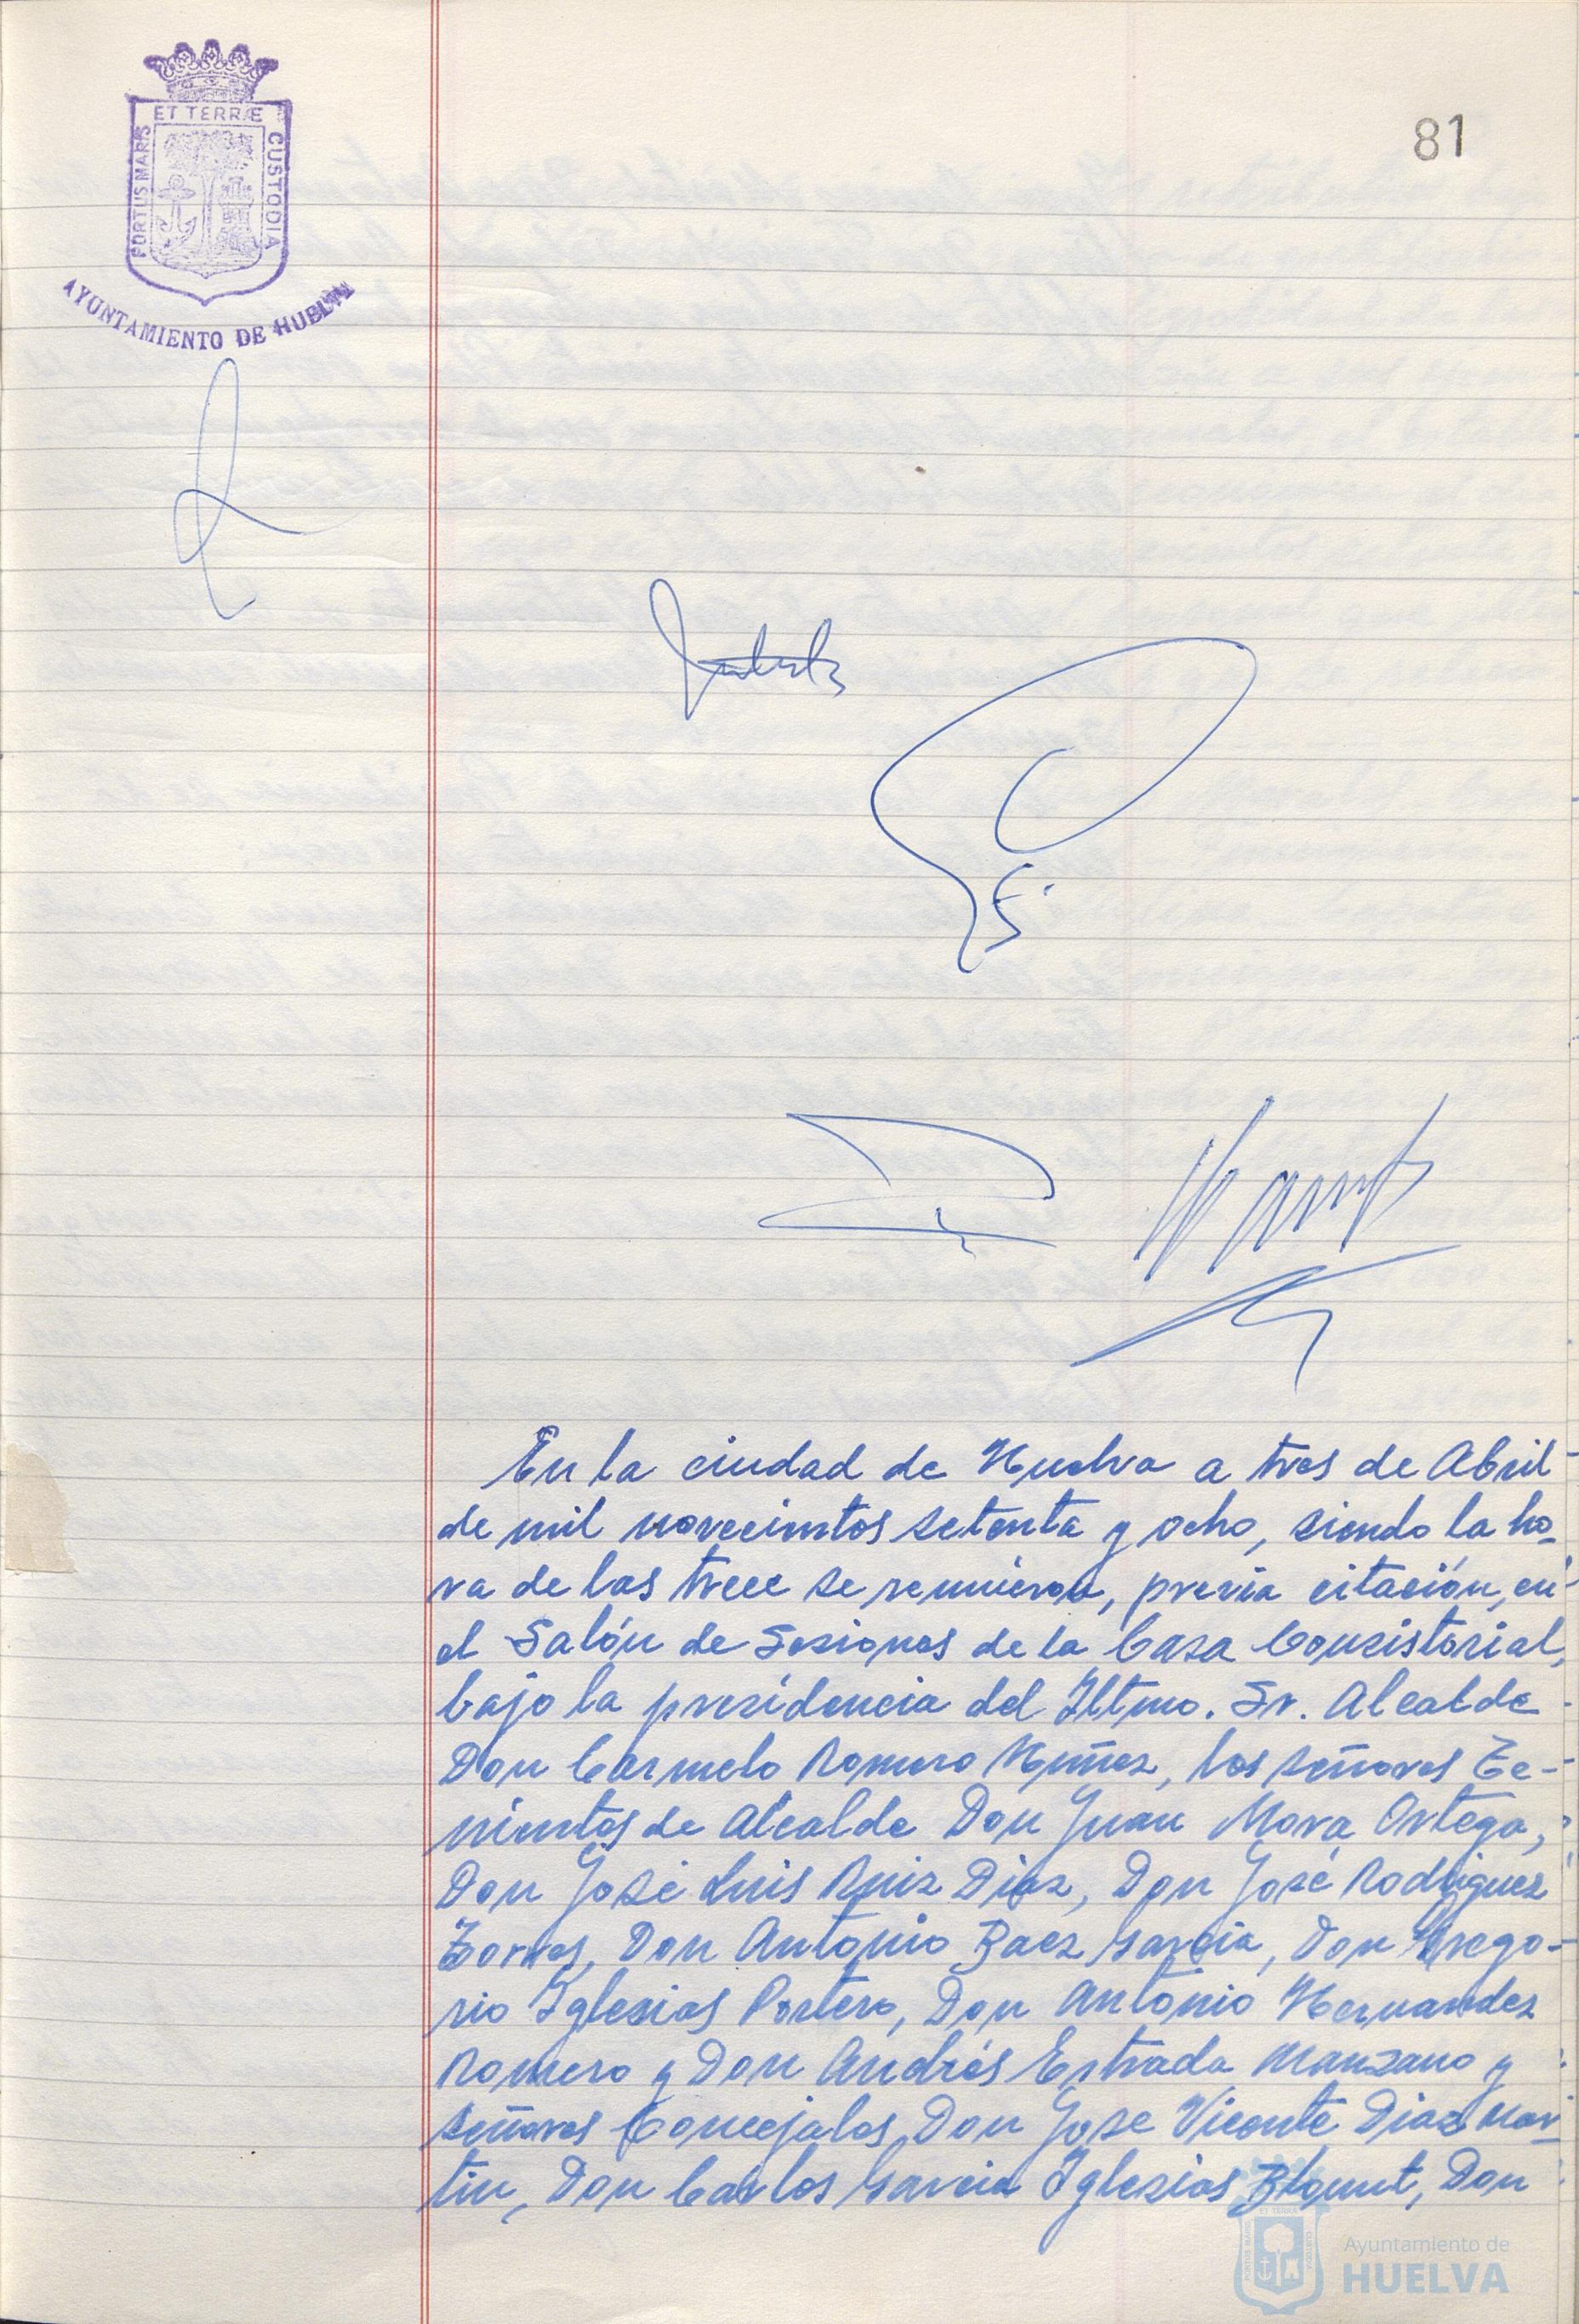 ET TERRÆ
PORTUS MARIS
CUSTODIA
AYUNTAMIENTO DE HUELVA
81
En la ciudad de Huelva a tres de Abril
de mil novecientos setenta y ocho, siendo la ho-
ra de las trece se reunieron, previa citación, en
el Salón de Sesiones de la Casa Consistorial,
bajo la presidencia del Iltmo. Sr. Alcalde
Don Carmelo Romero Núñez, los señores Te-
nientes de Alcalde Don Juan Mora Ortega,
Don José Luis Ruiz Díaz, Don José Rodriguez
Torres, Don Antonio Baez García, Don Grego-
rio Iglesias Portero, Don Antonio Hernandez
Romero y Don Andrés Estrada Manzano y
señores Concejales Don Jose Vicente Diaz Mar-
tin, Don Carlos Garcia Iglesias Blount, Don
Ayuntamiento de
HUELVA